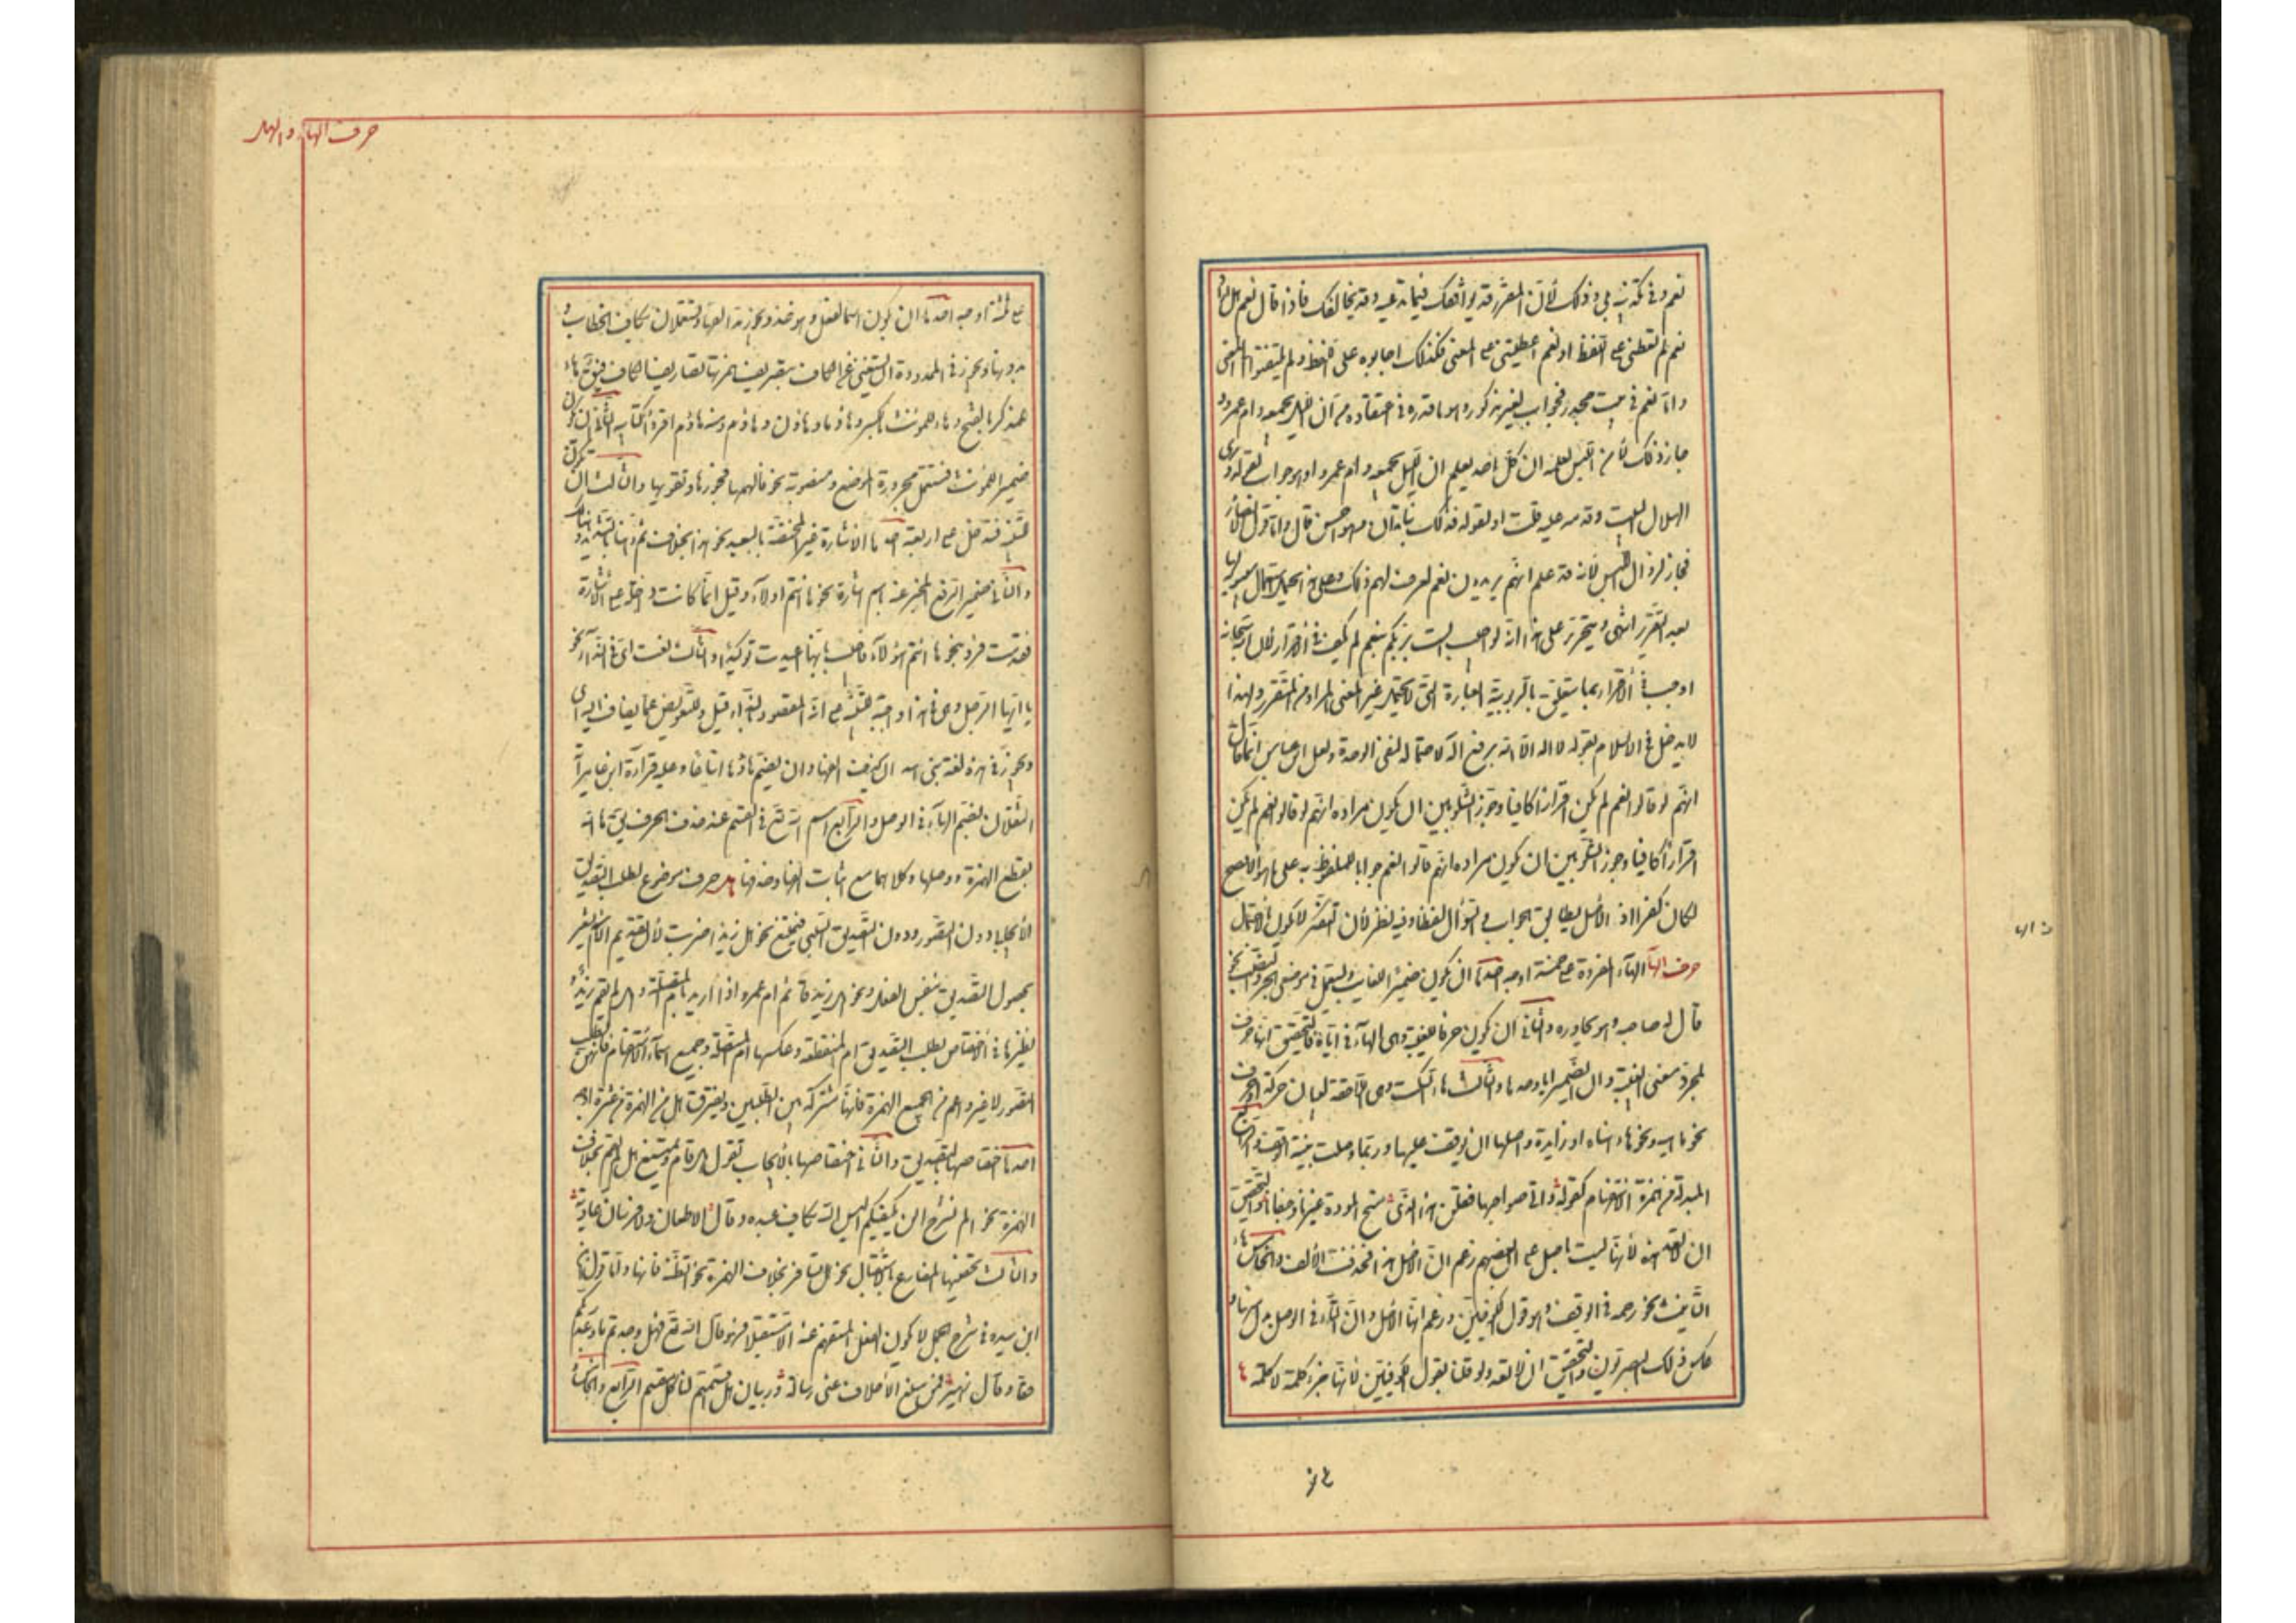 نعم وفي تكذيبه بلى وذلك لأن المقرر قد يوافقك فيما تدعيه وقد يخالفك فاذا قال نعم هل اراد
نعم لم تعطني على اللفظ او نعم اعطيتني على المعنى فلذلك اجابوه على اللفظ ولم يلتفتوا المعنى
واما نعم في بيت جحدر فجواب لغير مذكور وهو ما قدره في اعتقاده من ان الليل يجمعه وام عمرو و
جاز ذلك لأمن اللبس لعلمه ان كل احد يعلم ان الليل يجمعه وام عمرو او هو جواب لقوله وارى
الهلال البيت وقدمه عليه قلت او لقوله فذلك بنا تداني وهو احسن قال واما قول الانصار
فجاز لزوال اللبس لأنه قد علم انهم يريدون نعم نعرف لهم ذلك وعلى هذا يحمل استعمال سيبويه لها
بعد التقرير انتهى ويتحرر على هذا انه لو اجيب الست بربكم بنعم لم يكف في الاقرار لان الله سبحانه
اوجب في الاقرار بما يتعلق بالربوبية العبارة التي لا تحتمل غير المعنى المراد من المقرر ولهذا
لا يدخل في الاسلام بقوله لا اله الا الله برفع اله لاحتماله لنفي الوحدة ولعل ابن عباس انما قال
انهم لو قالوا نعم لم يكن اقرارا كافيا وجوز الشلوبين ان يكون مراده انهم لو قالوا نعم لم يكن
اقرارا كافيا وجوز الشلوبين ان يكون مراده انهم قالوا نعم جوابا للملفوظ به على ما هو الافصح
لكان كفرا اذ الاصل تطابق الجواب والسؤال لفظا وفيه نظر لأن التكفير لا يكون بالاحتمال
حرف الهاء الهاء المفردة على خمسة اوجه احدها ان يكون ضميرا للغائب ويستعمل في موضعي الجر والنصب نحو
قال له صاحبه وهو يحاوره والثاني ان يكون حرفا للغيبة وهي الهاء في اياه فالتحقيق انها حرف
لمجرد معنى الغيبة وان الضمير ايا وحدها والثالث هاء السكت وهي اللاحقة لبيان حركة او حرف
نحو ماهيه ونحو هاهناه او زايدة واصلها ان يوقف عليها وربما وصلت بنية الوقف والرابع
المبدلة من همزة الاستفهام كقوله واتى صواحبها فقلن هذا الذي منح المودة غيرنا وجفانا والتحقيق
ان لا تعد هذه لأنها ليست باصل على ان بعضهم زعم ان الاصل هذا فحذفت الألف والخامس هاء
التأنيث نحو رحمه في الوقف وهو قول الكوفيين وزعم انها الاصل وان التاء في الوصل بدل منها و
عكس ذلك البصريون والتحقيق ان لا تعد ولو قلنا بقول الكوفيين لأنها جزء كلمة لا كلمة ها
حرف الهاء والهاء
على ثلثة اوجه احدها ان يكون اسما لفعل وهو خذ ويجوز مد الفها ويستعملان بكاف الخطاب و
بدونها ويجوز في الممدودة ان يستغنى عن الكاف بتصريف همزتها تصاريف الكاف فيقال هاء
للمذكر بالفتح وهاء للمؤنث بالكسر وهاؤما وهاؤن وهاؤم ومنه هاؤم اقرؤا كتابيه الثاني ان يكون
ضميرا للمؤنث فتستعمل مجرورة الموضع ومنصوبته نحو فالهمها فجورها وتقويها والثالث ان تكون
للتنبيه فتدخل على اربعة احدها الاشارة غير المختصة بالبعيد نحو هذا بخلاف ثم وهنا بالتشديد وهنالك
والثاني ضمير الرفع المخبر عنه باسم اشارة نحو ها انتم اولاء وقيل انما كانت داخلة على الاشارة
فقدمت فرد بنحو ها انتم هؤلاء فاجيب بانها اعيدت توكيدا والثالث نعت اي في النداء نحو
يا ايها الرجل وهي في هذا واجبة للتنبيه على انه المقصود بالنداء قيل وللتعويض عما يضاف اليه اي
ويجوز في هذه لغة بني اسد ان يحذف الفها وان يضم هاؤها اتباعا وعليه قراءة ابن عامر آية
الثقلان بضم الهاء في الوصل والرابع اسم الله تع في القسم عند حذف الحرف يق ها الله
بقطع الهمزة ووصلها وكلاهما مع اثبات الفها وحذفها هل حرف موضوع لطلب التصديق
الايجابي دون التصور ودون التصديق السلبي فيمتنع نحو هل زيدا ضربت لأن تقديم الاسم يشعر
بحصول التصديق بنفس الفعل ونحو هل زيد قائم ام عمرو اذا اريد بام المتصلة وهل لم يقم زيد و
نظيرها في الاختصاص بطلب التصديق ام المنقطعة وعكسها ام المتصلة وجميع اسماء الاستفهام فانهن لطلب
التصور لا غير واعم من الجميع الهمزة فانها مشتركة بين الطلبين وتفترق هل من الهمزة من عشرة اوجه
احدها اختصاصها بالتصديق والثاني اختصاصها بالايجاب تقول هل قام ويمتنع هل لم يقم بخلاف
الهمزة نحو الم نشرح الن يكفيكم اليس الله بكاف عبده وقال الا طعان ولا فرسان عادية
والثالث تخصيصها المضارع بالاستقبال نحو هل تسافر بخلاف الهمزة نحو اتظنه قائما واما قول
ابن سيده في شرح الجمل لا يكون الفعل المستفهم عنه الا مستقبلا فسهو قال الله تع فهل وجدتم ما وعد ربكم
حقا وقال زهير فمن مبلغ الأحلاف عني رسالة وذبيان هل اقسمتم كل مقسم الرابع والخامس